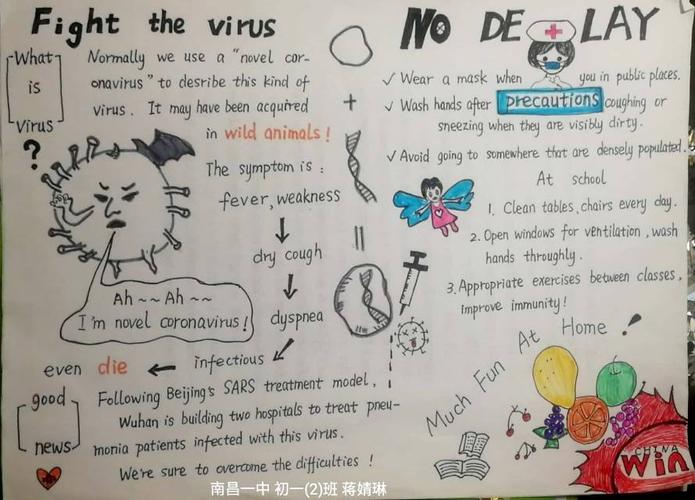 Fight the virus
What
is
virus
?
Normally we use a "novel cor-
onavirus" to desribe this kind of
virus. It may have been acquired
in wild animals!
The symptom is:
fever, weakness
dry cough
dyspnea
infectious
even die
Ah~~Ah~~
I'm novel coronavirus!
good
news
Following Beijing's SARS treatment model,
Wuhan is building two hospitals to treat pneu-
monia patients infected with this virus.
We're sure to overcome the difficulties!
NO DELAY
✓ Wear a mask when you in public places.
✓ Wash hands after coughing or
precautions
sneezing when they are visibly dirty.
✓ Avoid going to somewhere that are densely populated.
At school
1. Clean tables, chairs every day.
2. Open windows for ventilation, wash
hands throughly.
3. Appropriate exercises between classes,
improve immunity!
Much Fun At Home!
CHINA
Win
南昌一中 初一(2)班 蒋婧琳